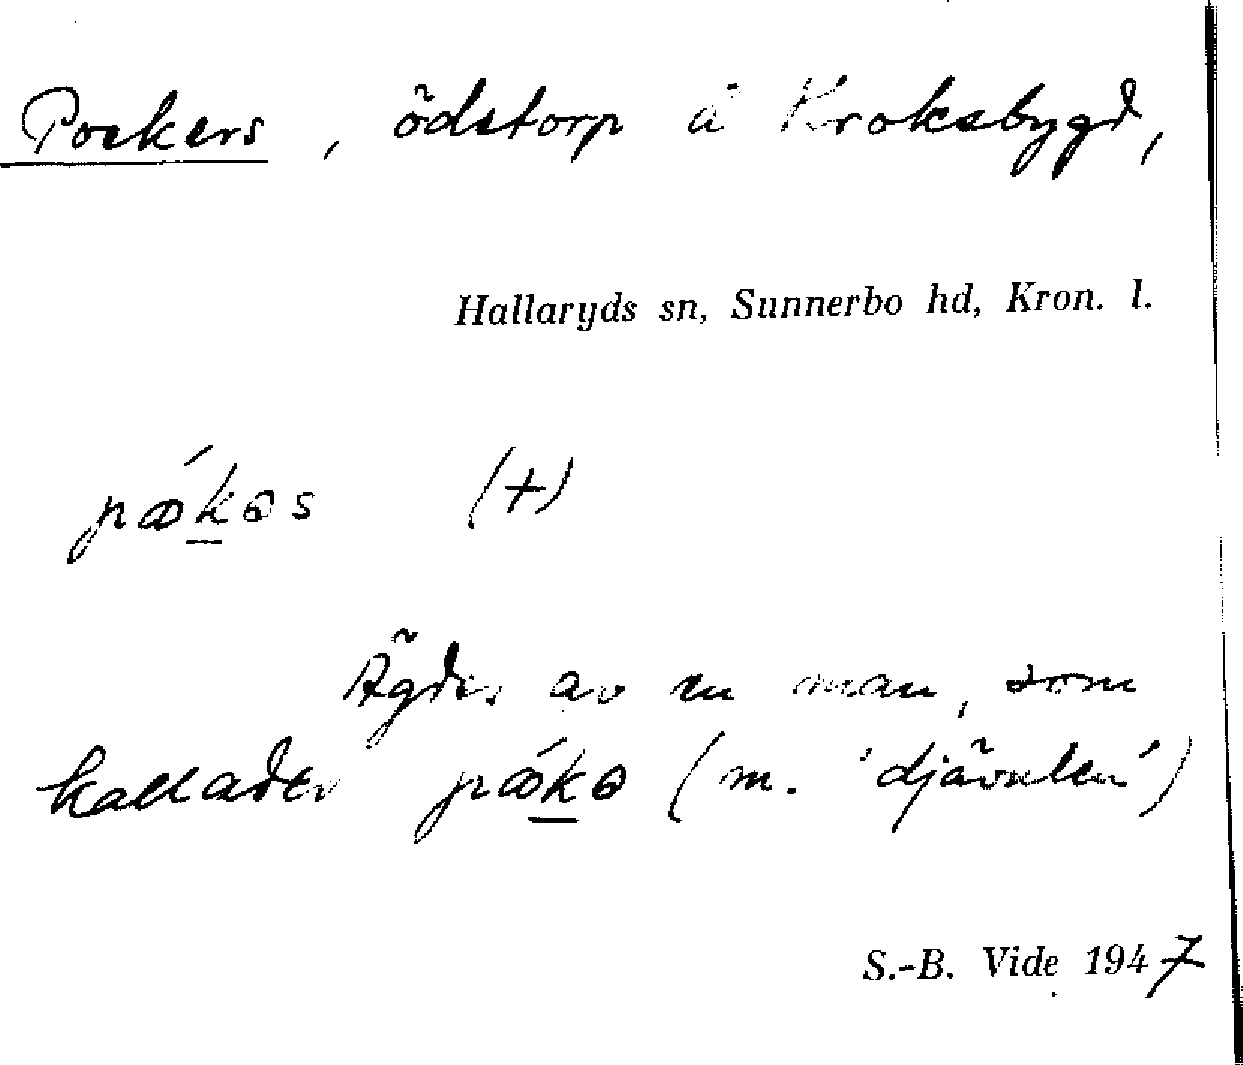 Pockers, ödstorp å Kroksbygd,
Hallaryds sn, Sunnerbo hd, Kron. l.
(+)
Ägdes av en man, som
kallades (m. 'djävulen')
S.-B. Vide 1947